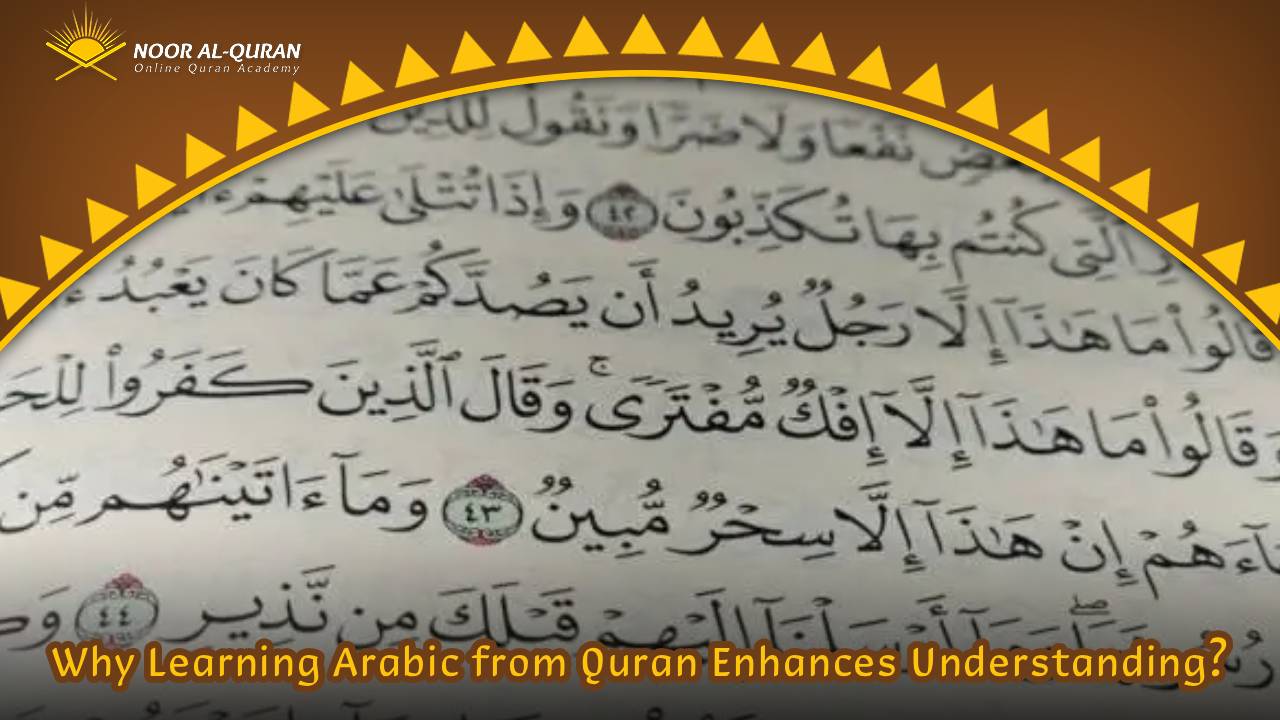 NOOR AL-QURAN
Online Quran Academy
نَفْعًا وَلَا ضَرًّا وَنَقُولُ لِلَّذِينَ
ٱلَّتِى كُنتُم بِهَا تُكَذِّبُونَ ٤٢ وَإِذَا تُتْلَىٰ عَلَيْهِمْ
قَالُوا۟ مَا هَـٰذَآ إِلَّا رَجُلٌ يُرِيدُ أَن يَصُدَّكُمْ عَمَّا كَانَ يَعْبُدُ
وَقَالُوا۟ مَا هَـٰذَآ إِلَّآ إِفْكٌ مُّفْتَرًى ۚ وَقَالَ ٱلَّذِينَ كَفَرُوا۟
إِنْ هَـٰذَآ إِلَّا سِحْرٌ مُّبِينٌ ٤٣ وَمَآ ءَاتَيْنَـٰهُم مِّن
قَبْلَكَ مِن نَّذِيرٍ ٤٤
Why Learning Arabic from Quran Enhances Understanding?